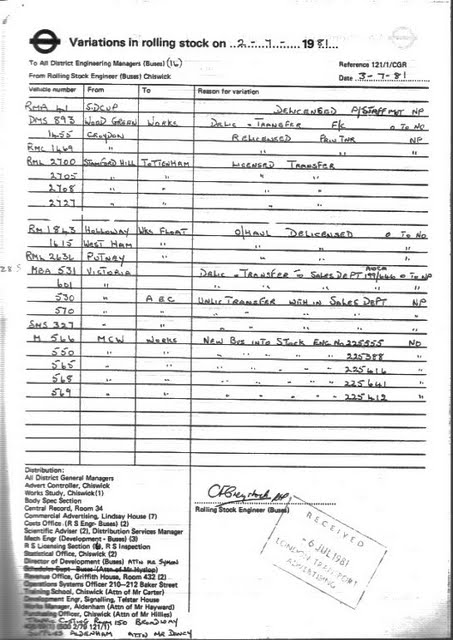 Variations in rolling stock on 2-7- 1981
To All District Engineering Managers (Buses) (16)
Reference 121/1/CGR
From Rolling Stock Engineer (Buses) Chiswick
Date 3-7-81
Vehicle number From To Reason for variation
RMA 41 SIDCUP DELICENSED P/STAFF NP
DMS 893 WOOD GREEN WORKS DELIC & TRANSFER F/C O TO NO
1455 CROYDON RELICENSED NP
RML 1469 " " "
RML 2700 STAMFORD HILL TOTTENHAM LICENSED TRANSFER
2705 " " " "
2708 " " " "
2727 " " " "
RM 1843 HOLLOWAY WKS FLOAT O/HAUL DELICENSED O TO NO
1615 WEST HAM " " " "
RML 2636 PUTNEY " " " "
MBA 531 VICTORIA DELIC & TRANSFER TO SALES DEPT O TO NP
601 " " " "
530 " A B C UNLIC TRANSFER WITHIN SALES DEPT NP
570 " " " "
SMS 327 " " " "
M 566 MCW WORKS NEW BUS INTO STOCK ENG. No. 225355 NO
550 " " " 225388 "
565 " " " 225414 "
568 " " " 225441 "
569 " " " 225412 "
Distribution:
All District General Managers
Advert Controller, Chiswick
Works Study, Chiswick (1)
Body Spec Section
Central Record, Room 34
Commercial Advertising, Lindsay House (7)
Costs Office (R S Engr- Buses) (2)
Scientific Adviser (2), Distribution Services Manager
Mech Engr (Development - Buses) (3)
R S Licensing Section, R S Inspection
Statistical Office, Chiswick (2)
Director of Development (Buses) ATTN MR
Schedule Dept - Buses (Attn of Mr Hyslop)
Revenue Office, Griffith House, Room 432 (2)
Operations Systems Officer 210-212 Baker Street
Training School, Chiswick (Attn of Mr Carter)
Development Engr, Signalling, Telstar House
Works Manager, Aldenham (Attn of Mr Hayward)
Purchasing Officer, Chiswick (Attn of Mr Hillies)
ROOM 150 BROADWAY
ALDENHAM ATTN MR DANCY
Rolling Stock Engineer (Buses)
RECEIVED
-6 JUL 1981
LONDON TRANSPORT
ADVERTISING